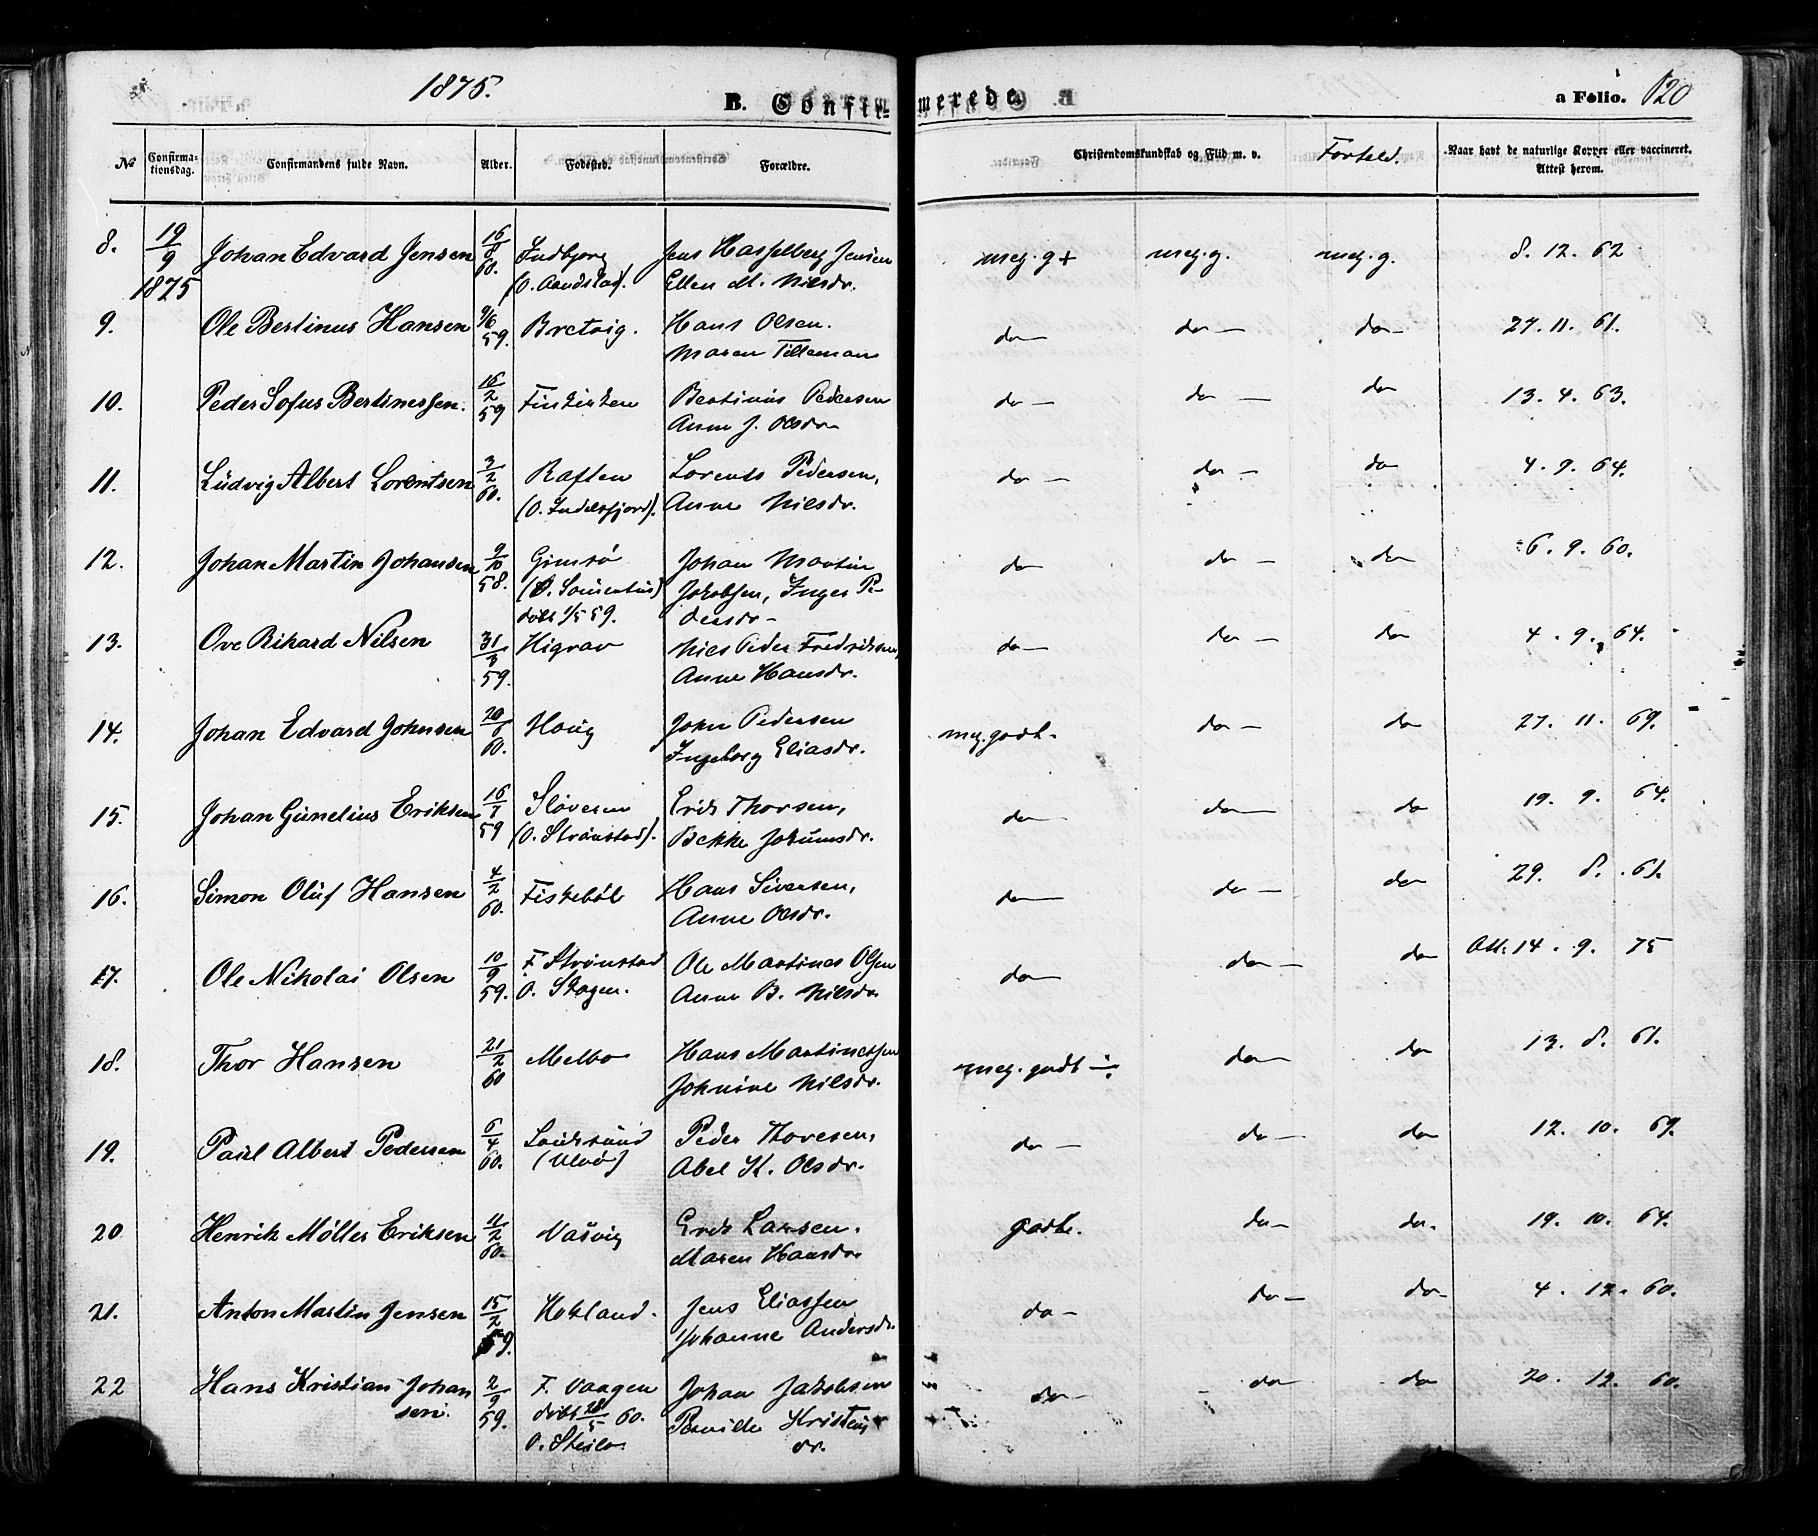 1875.
B. Confirmerede.
a Folio. 120
No
Confirma-
tionsdag.
Confirmandens fulde Navn.
Alder.
Fødested.
Forældre.
Christendomskundskab og Flid m. v.
Forhold.
Naar havt de naturlige Kopper eller vaccineret.
Attest herom.
8. 19/9 Johan Edvard Jensen 16/8 Indbjorg Jens Hasselberg Jensen meg. g + meg. g. meg. g. 8. 12. 62
1875 60. (O. Aandstad). Ellen M. Nilsdr.
9. Ole Bertinus Hansen 9/6 Bretvig. Hans Olsen. do — do — do — 27. 11. 61.
59. Maren Tilleman
10. Peder Sofus Bertinessen. 16/2 Finkirken Bertinus Pedersen do — do — do 13. 4. 63.
59 Anne J. Olsdr.
11. Ludvig Albert Lorentsen 3/2 Raften Lorents Pedersen, do — do — do 4. 9. 64.
60. (O. Indelsfjord). Anne Nilsdr.
12. Johan Martin Johansen 9/10 Gimsø Johan Martin do do — do 6. 9. 60.
58. Jakobsen, Inger Pe-
døbt 1/5 59. dersdr.
13. Ove Rikard Nilsen 31/3 Higrav Niels Peder Fredriksen, do — do — do 4. 9. 64.
59. Anne Hansdr.
14. Johan Edvard Johnsen 20/6 Houg John Pedersen meg. godt. do — do 27. 11. 69.
60. Ingeborg Eliasdr.
15. Johan Gunelius Eriksen 16/7 Sløveren Erik Thorsen, do — do — do 19. 9. 64.
59 (O. Strønstad). Bekke Jokumsdr.
16. Simon Oluf Hansen 4/2 Fiskebøl Hans Siversen, do — do — do 29. 8. 61.
60. Anne Olsdr.
17. Ole Nikolai Olsen 10/9 F. Strønstad Ole Martines Olsen do — do — do Att. 14. 9. 75
59. O. Skogen. Anne B. Nilsdr.
18. Thor Hansen 21/2 Melbo Hans Martinessen meg. godt ÷ do — do 13. 8. 61.
60 Johnine Nilsdr.
19. Paul Albert Pedersen 6/4 Peder Thoresen, do — do — do 12. 10. 69.
60. (Ulvø) Abel K. Olsdr.
20 Henrik Møller Eriksen 11/2 Vasvig Erik Larsen. godt. do — do. 19. 10. 64.
60. Maren Hansdr.
21. Anton Martin Jensen 15/2 Hokland. Jens Eliassen do — do — do 4. 12. 60.
59. Johanne Andersdr.
22 Hans Kristian Johan 2/9 F. Vaagen Johan Jakobsen do — do — do 20. 12. 60.
sen. 59. døbt 28/5 60. Pernille Kristens
O. Steilo. dr.